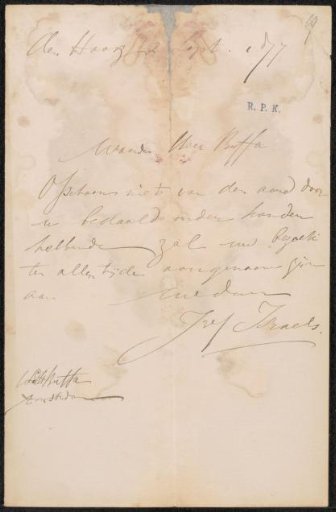 den Haag Sept. 1877
R. P. K.
Waarde Heer Buffa
Ofschoon niets van den aard door
u bedoeld onder handen
hebbende zal uw bezoek
ten allen tijde aangenaam zijn
aan
Jozef Israels.
Buffa
Amsterdam